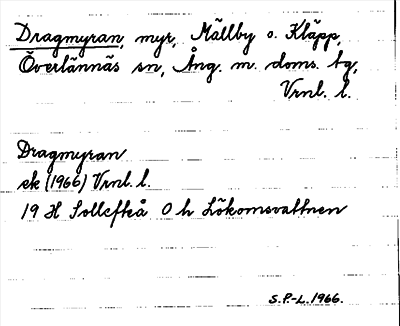 Dragmyran, myr, Mällby o. Kläpp,
Överlännäs sn, Ång. m. doms. tg,
Vrnl. l.
Dragmyran
ek (1966) Vrnl. l.
19 H Sollefteå 0 h Lökomsvattnen
S.P.-L. 1966.